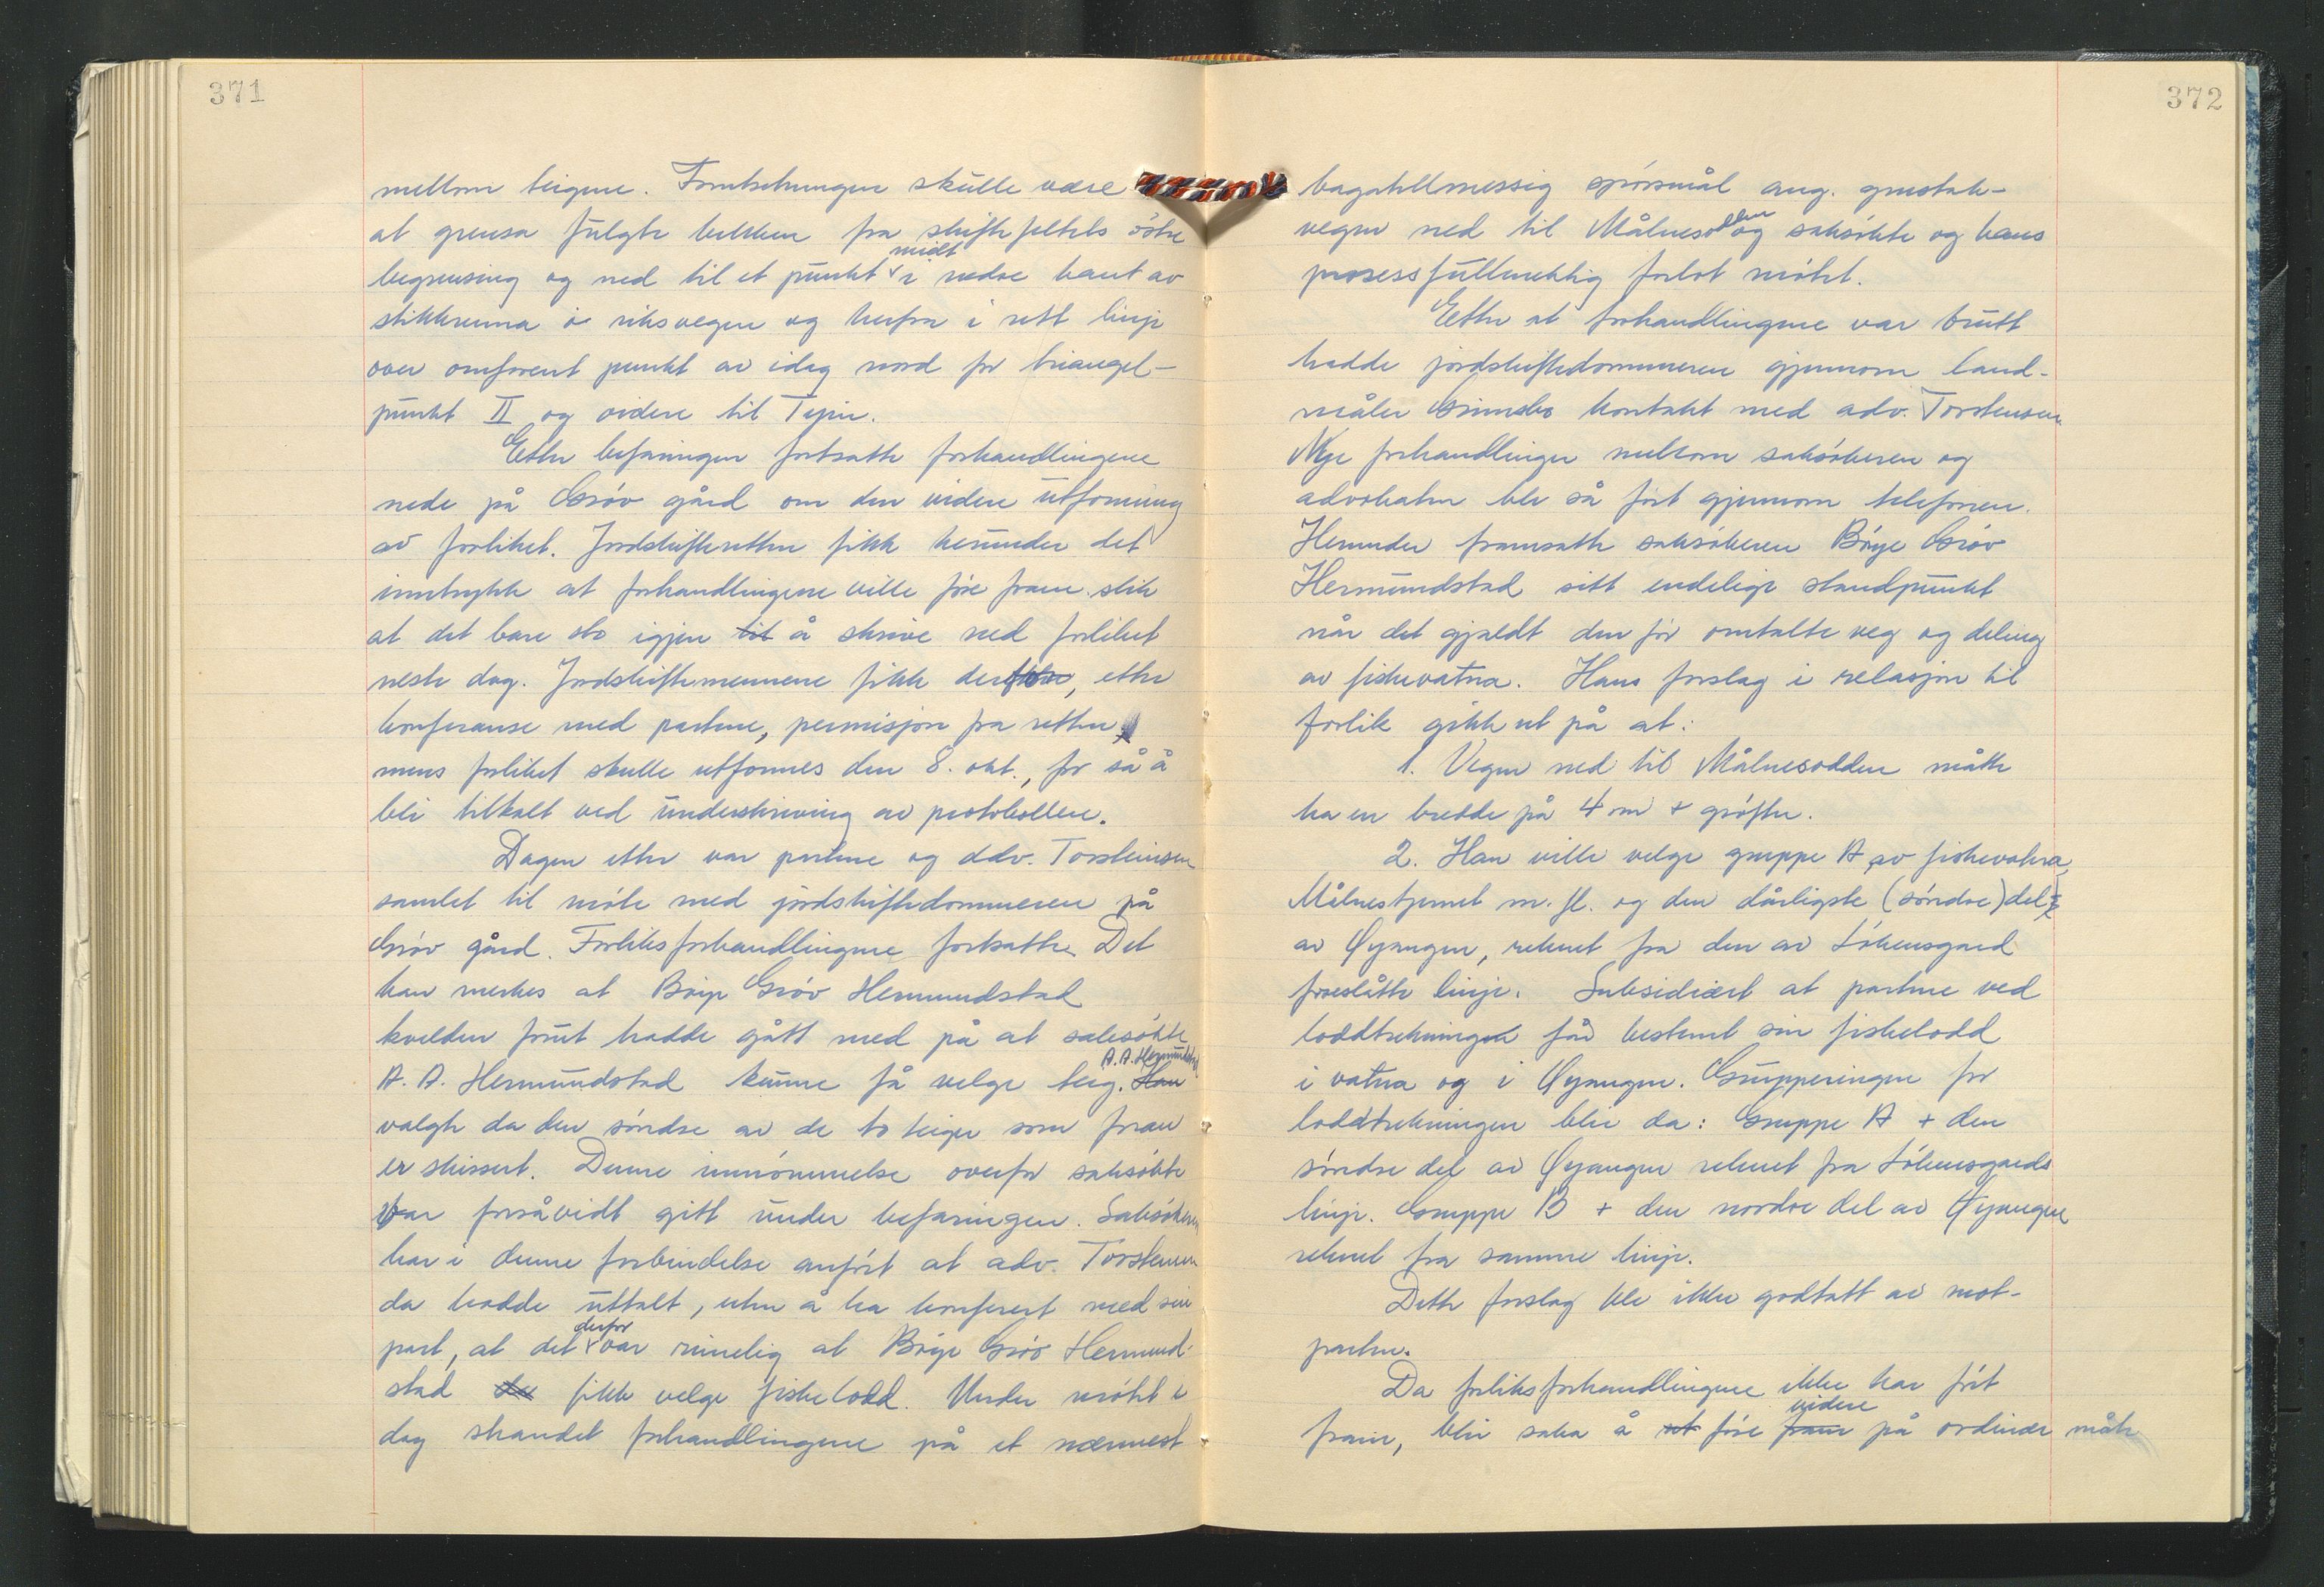 371
mellom teigene. Forutsetningen skulle være
at grensa fulgte bekken fra skiftefeltets östre
begrensing og ned til et punkt midt i nedre kant av
stikkrenna i riksvegen og herfra i rett linje
over omforent punkt av idag nord for triangel-
punkt II og videre til Tyin.
Etter befaringen fortsatte forhandlingene
nede på Gröv gård om den videre utforming
av forliket. Jordskifteretten fikk herunder det
inntrykk at forhandlingene ville före fram slik
at det bare sto igjen til å skrive ned forliket
neste dag. Jordskiftemennene fikk derfor, etter
konferanse med partene, permisjon fra retten
mens forliket skulle utformes den 8. okt., for så å
bli tilkalt ved underskriving av protokollen.
Dagen etter var partene og adv. Torsteinsen
samlet til möte med jordskiftedommeren på
Gröv gård. Forliksforhandlingene fortsatte. Det
kan merkes at Böye Gröv Hermundstad
kvelden forut hadde gått med på at saksökte
A. A. Hermundstad kunne få velge teig. Han A. A. Hermundstad
valgte da den söndre av de to teiger som foran
er skissert. Denne innrömmelse overfor saksökte
var forsåvidt gitt under befaringen. Saksökeren
har i denne forbindelse anfört at adv. Torsteinsen
da hadde uttalt, uten å ha konferert med sin
part, at det derfor var rimelig at Böye Gröv Hermund-
stad fikk velge fiskelodd. Under mötet i
dag strandet forhandlingene på et nærmest
372
bagatellmessig spörsmål ang. grustak-
vegen ned til Målnesodden og saksökte og hans
prosessfullmektig forlot mötet.
Etter at forhandlingene var brutt
hadde jordskiftedommeren gjennom land-
måler kontakt med adv. Torsteinsen
Nye forhandlinger mellom saksökeren og
advokaten ble så fört gjennom telefonen.
Herunder framsatte saksökeren Böye Gröv
Hermundstad sitt endelige standpunkt
når det gjaldt den för omtalte veg og deling
av fiskevatna. Hans forslag i relasjon til
forlik gikk ut på at:
1. Vegen ned til Målnesodden måtte
ha en bredde på 4 m + gröfter.
2. Han ville velge gruppe A av fiskevatna,
Målnestjernet m. fl. og den dårligste (söndre) del
av Öyangen, reknet fra den av Lökensgard
foreslåtte linje. Subsidiært at partene ved
loddtrekningen får bestemt sin fiskelodd
i vatna og i Öyangen. Grupperingen for
loddtrekningen blir da: Gruppe A + den
söndre del av Öyangen reknet fra Lökensgards
linje. Gruppe B + den nordre del av Öyangen
reknet fra samme linje.
Dette forslag ble ikke godtatt av mot-
parten.
Da forliksforhandlingene ikke har fört
fram, blir saka å före fram videre på ordinær måte